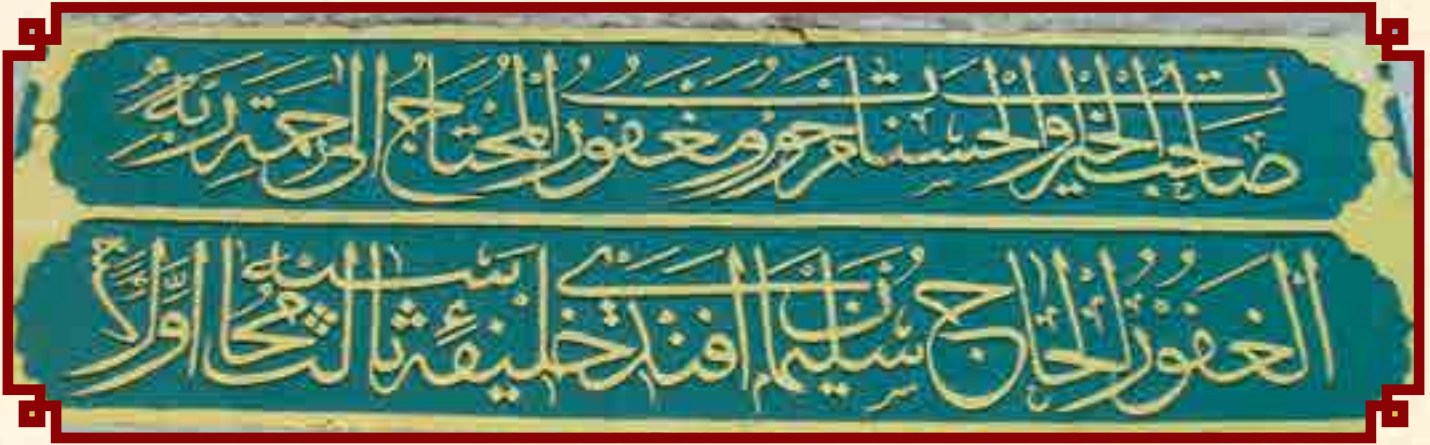 صاحب الخيرات والحسنات مرحوم ومغفور المحتاج الى رحمة ربه
الغفور الحاج سليمان افندى خليفهٔ ثالث